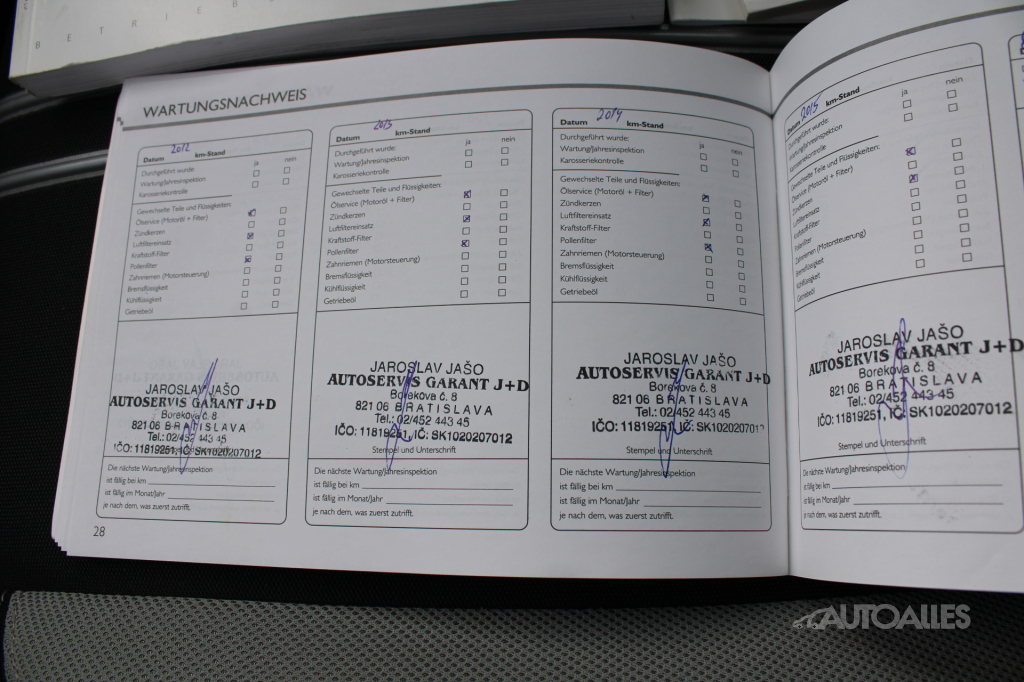 BETRIEB
WARTUNGSNACHWEIS
Datum 2012 km-Stand
Durchgeführt wurde: ja nein
Wartung/Jahresinspektion
Karosseriekontrolle
Gewechselte Teile und Flüssigkeiten:
Ölservice (Motoröl + Filter)
Zündkerzen
Luftfiltereinsatz
Kraftstoff-Filter
Pollenfilter
Zahnriemen (Motorsteuerung)
Bremsflüssigkeit
Kühlflüssigkeit
Getriebeöl
JAROSLAV JAŠO
AUTOSERVIS GARANT J+D
Borekova č. 8
821 06 BRATISLAVA
Tel.: 02/452 443 45
IČO: 11819251, IČ: SK1020207012
Die nächste Wartung/Jahresinspektion
ist fällig bei km
ist fällig im Monat/Jahr
je nach dem, was zuerst zutrifft.
28
Datum 2013 km-Stand
Durchgeführt wurde: ja nein
Wartung/Jahresinspektion
Karosseriekontrolle
Gewechselte Teile und Flüssigkeiten:
Ölservice (Motoröl + Filter)
Zündkerzen
Luftfiltereinsatz
Kraftstoff-Filter
Pollenfilter
Zahnriemen (Motorsteuerung)
Bremsflüssigkeit
Kühlflüssigkeit
Getriebeöl
JAROSLAV JAŠO
AUTOSERVIS GARANT J+D
Borekova č. 8
821 06 BRATISLAVA
Tel.: 02/452 443 45
IČO: 11819251, IČ: SK1020207012
Stempel und Unterschrift
Die nächste Wartung/Jahresinspektion
ist fällig bei km
ist fällig im Monat/Jahr
je nach dem, was zuerst zutrifft.
Datum 2014 km-Stand
Durchgeführt wurde: ja nein
Wartung/Jahresinspektion
Karosseriekontrolle
Gewechselte Teile und Flüssigkeiten:
Ölservice (Motoröl + Filter)
Zündkerzen
Luftfiltereinsatz
Kraftstoff-Filter
Pollenfilter
Zahnriemen (Motorsteuerung)
Bremsflüssigkeit
Kühlflüssigkeit
Getriebeöl
JAROSLAV JAŠO
AUTOSERVIS GARANT J+D
Borekova č. 8
821 06 BRATISLAVA
Tel.: 02/452 443 45
IČO: 11819251, IČ: SK1020207012
Stempel und Unterschrift
Die nächste Wartung/Jahresinspektion
ist fällig bei km
ist fällig im Monat/Jahr
je nach dem, was zuerst zutrifft.
Datum 2015 km-Stand
Durchgeführt wurde: ja nein
Wartung/Jahresinspektion
Karosseriekontrolle
Gewechselte Teile und Flüssigkeiten:
Ölservice (Motoröl + Filter)
Zündkerzen
Luftfiltereinsatz
Kraftstoff-Filter
Pollenfilter
Zahnriemen (Motorsteuerung)
Bremsflüssigkeit
Kühlflüssigkeit
Getriebeöl
JAROSLAV JAŠO
AUTOSERVIS GARANT J+D
Borekova č. 8
821 06 BRATISLAVA
Tel.: 02/452 443 45
IČO: 11819251, IČ: SK1020207012
Stempel und Unterschrift
Die nächste Wartung/Jahresinspektion
ist fällig bei km
ist fällig im Monat/Jahr
je nach dem, was zuerst zutrifft.
AUTOALLES